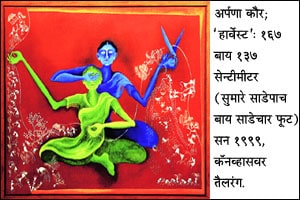 अर्पणा कौर;
'हार्वेस्ट': १६७
बाय १३७
सेन्टीमीटर
(सुमारे साडेपाच
बाय साडेचार फूट)
सन १९९९,
कॅनव्हासवर
तैलरंग.